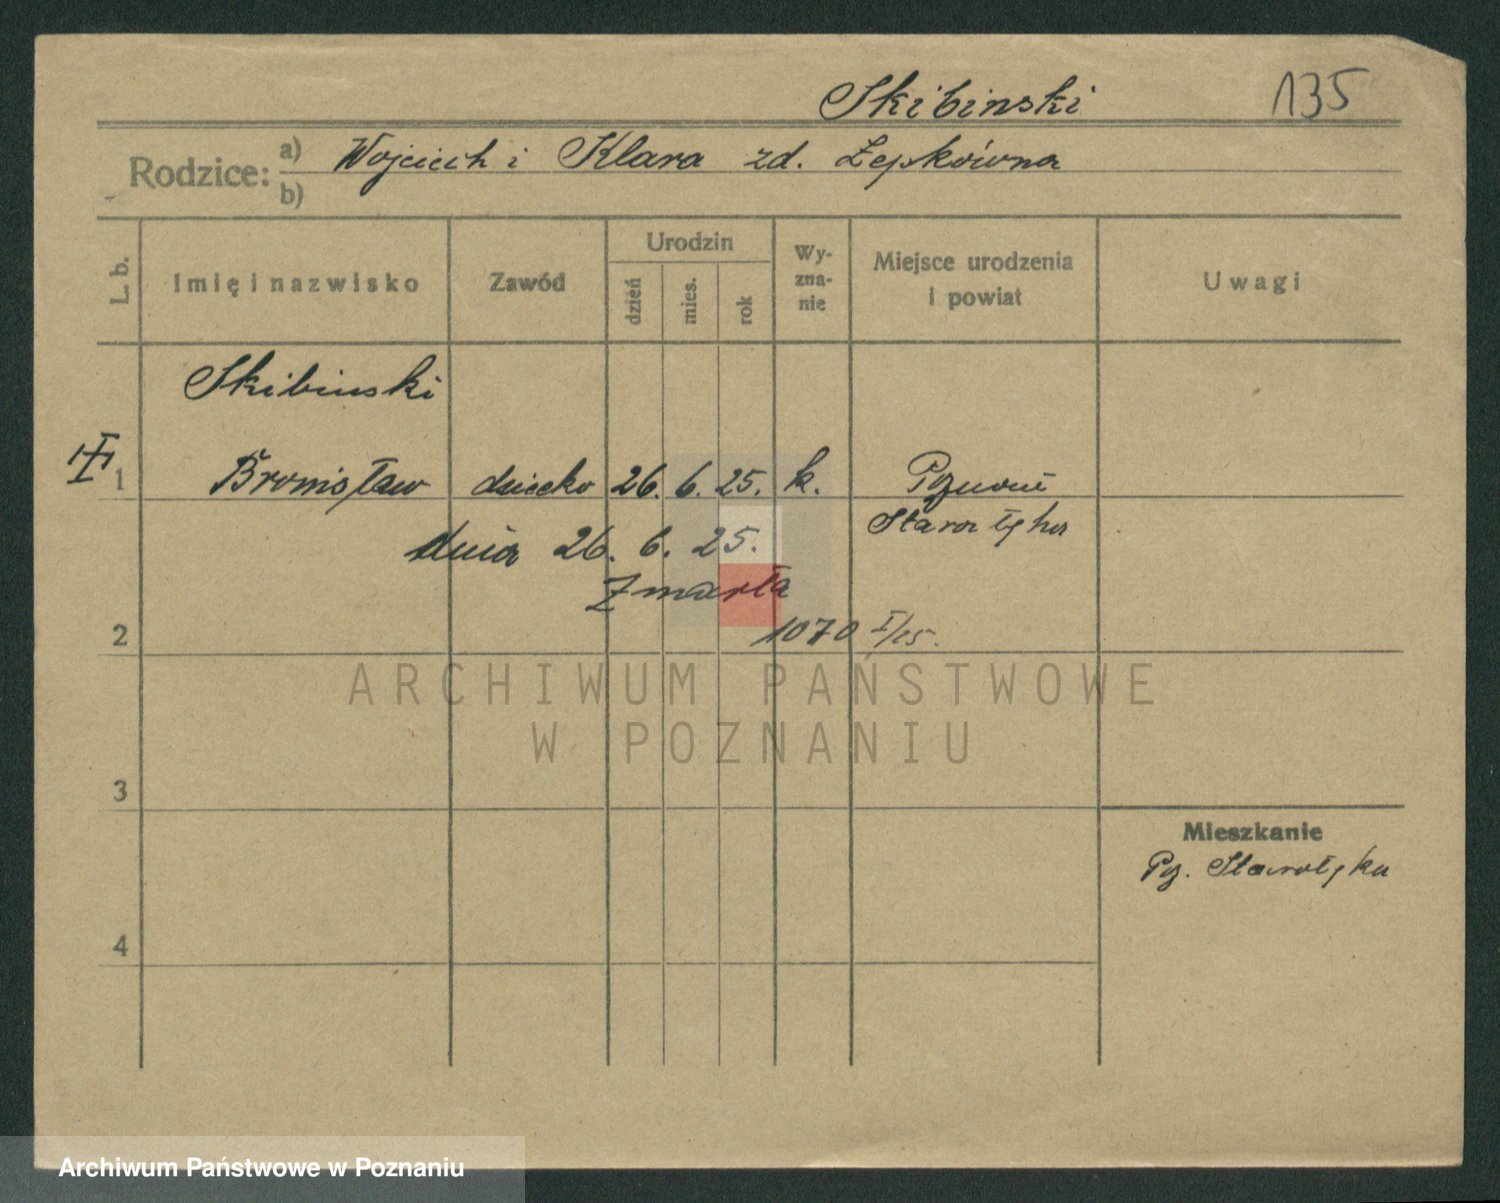 Skibinski 135
Rodzice: a) Wojciech i Klara zd. Łepkówna
b)
L. b. Imię i nazwisko Zawód Urodzin dzień mies. rok Wy-zna-nie Miejsce urodzenia i powiat Uwagi
Skibinski
1 Bronisław dziecko 26. 6. 25. k. Poznań
Starołęka
dnia 26. 6. 25.
Zmarła
2 1070 I/25.
ARCHIWUM PAŃSTWOWE
W POZNANIU
3
Mieszkanie
Pozn. Starołęka
4
Archiwum Państwowe w Poznaniu